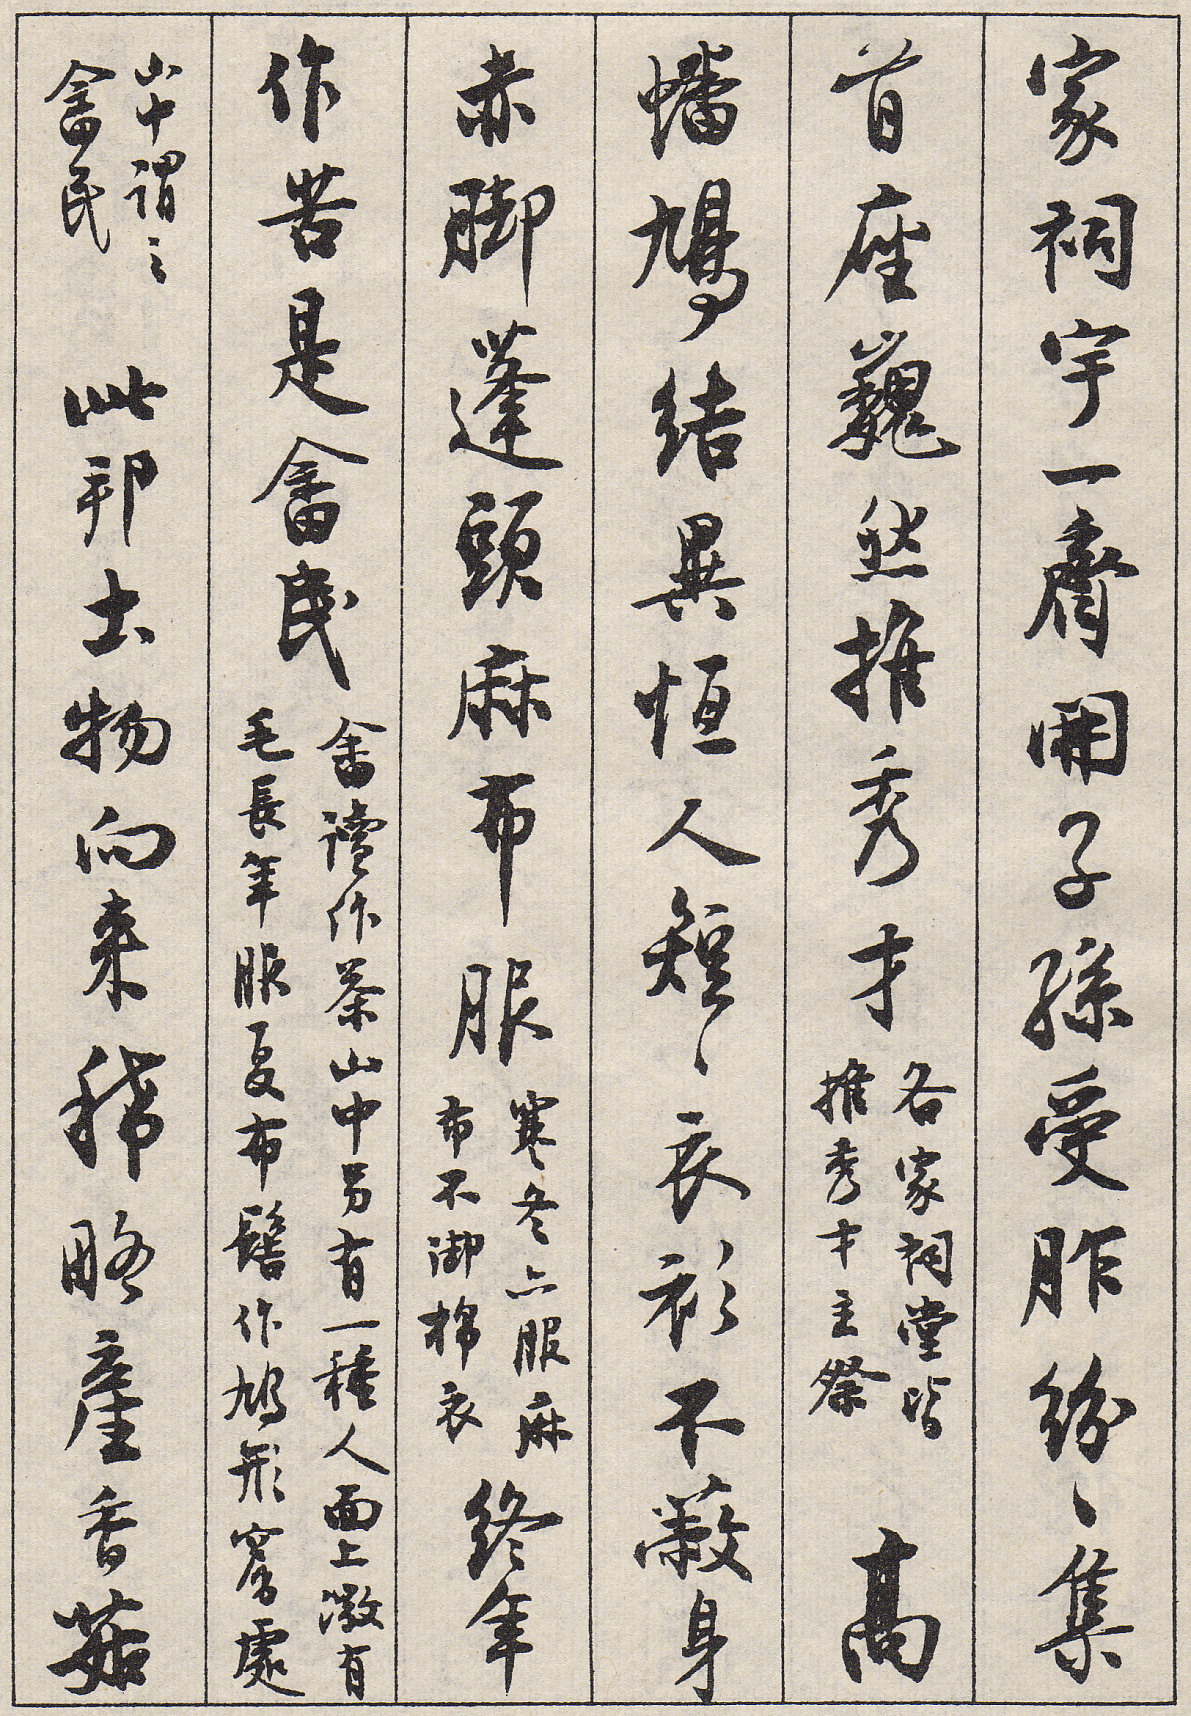 家祠宇一齊開子孫受胙紛〻集
首座巍然推秀才
各家祠堂皆
推秀才主祭
高
蟠鳩結異恒人短〻衣衫不蔽身
赤脚蓬頭麻布服
寒冬亦服麻
布不御棉衣
終年
作苦是畬民
畬讀作茶山中另有一種人面上微有
毛長年服夏布髻作鳩形穴處
山中謂之
畬民
此邦土物向来稀略産香菇